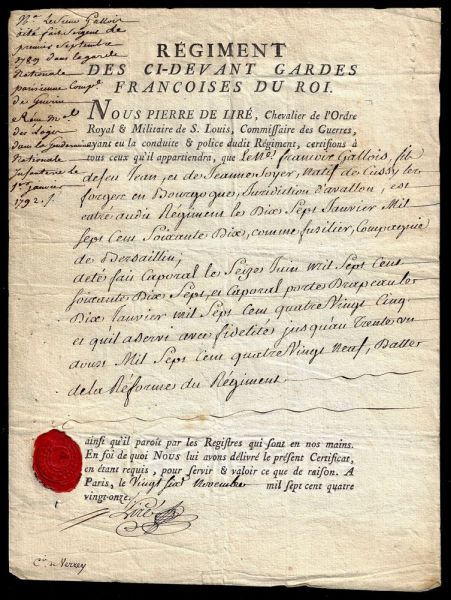 Nta. Le Sieur Gallois
a été fait Sergent de
premier Septembre
1789 dans la garde
Nationale
parisienne Compie
de Guerin
et
des Loger
dans la Gendarmerie
Nationale
Infanterie le
1er Janvier
1792.
RÉGIMENT
DES CI-DEVANT GARDES
FRANCOISES DU ROI.
NOUS PIERRE DE LIRÉ, Chevalier de l'Ordre
Royal & Militaire de S. Louis, Commissaire des Guerres,
ayant eu la conduite & police dudit Régiment, certifions à
tous ceux qu'il appartiendra, que le Né. francois Gallois, fils
de feu Jean, et de Jeanne Soyer, natif de Cussy les
forges en Bourgogne, Juridiction d'avallon, est
entré audit Régiment le Dix Sept Janvier Mil
Sept Cent Soixante Dix, comme fusilier, Compagnie
de Versaillin,
a été fait Caporal le Seize Juin mil Sept Cent
Soixante Dix Sept, et Caporal porte Drapeau le
Dix Janvier mil Sept Cent quatre Vingt Cinq
et qu'il a Servi avec fidelité jusqu'au Trente un
aoust Mil Sept Cent quatre Vingt Neuf, Datte
de la Réforme du Régiment
ainsi qu'il paroît par les Registres qui sont en nos mains.
En foi de quoi NOUS lui avons délivré le présent Certificat,
en étant requis, pour servir & valoir ce que de raison. A
Paris, le Vingt Six Novembre mil sept cent quatre
vingt-onze.
Liré
Cie de Versey